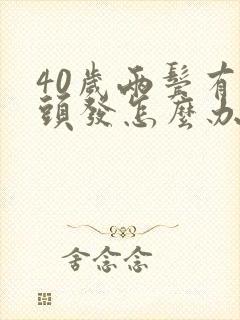 40歲兩鬢有
頭發怎麼办
舍念念